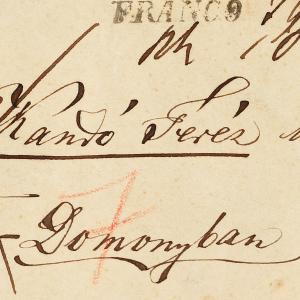 FRANCO
Kandó Teréz
7
Domonyban